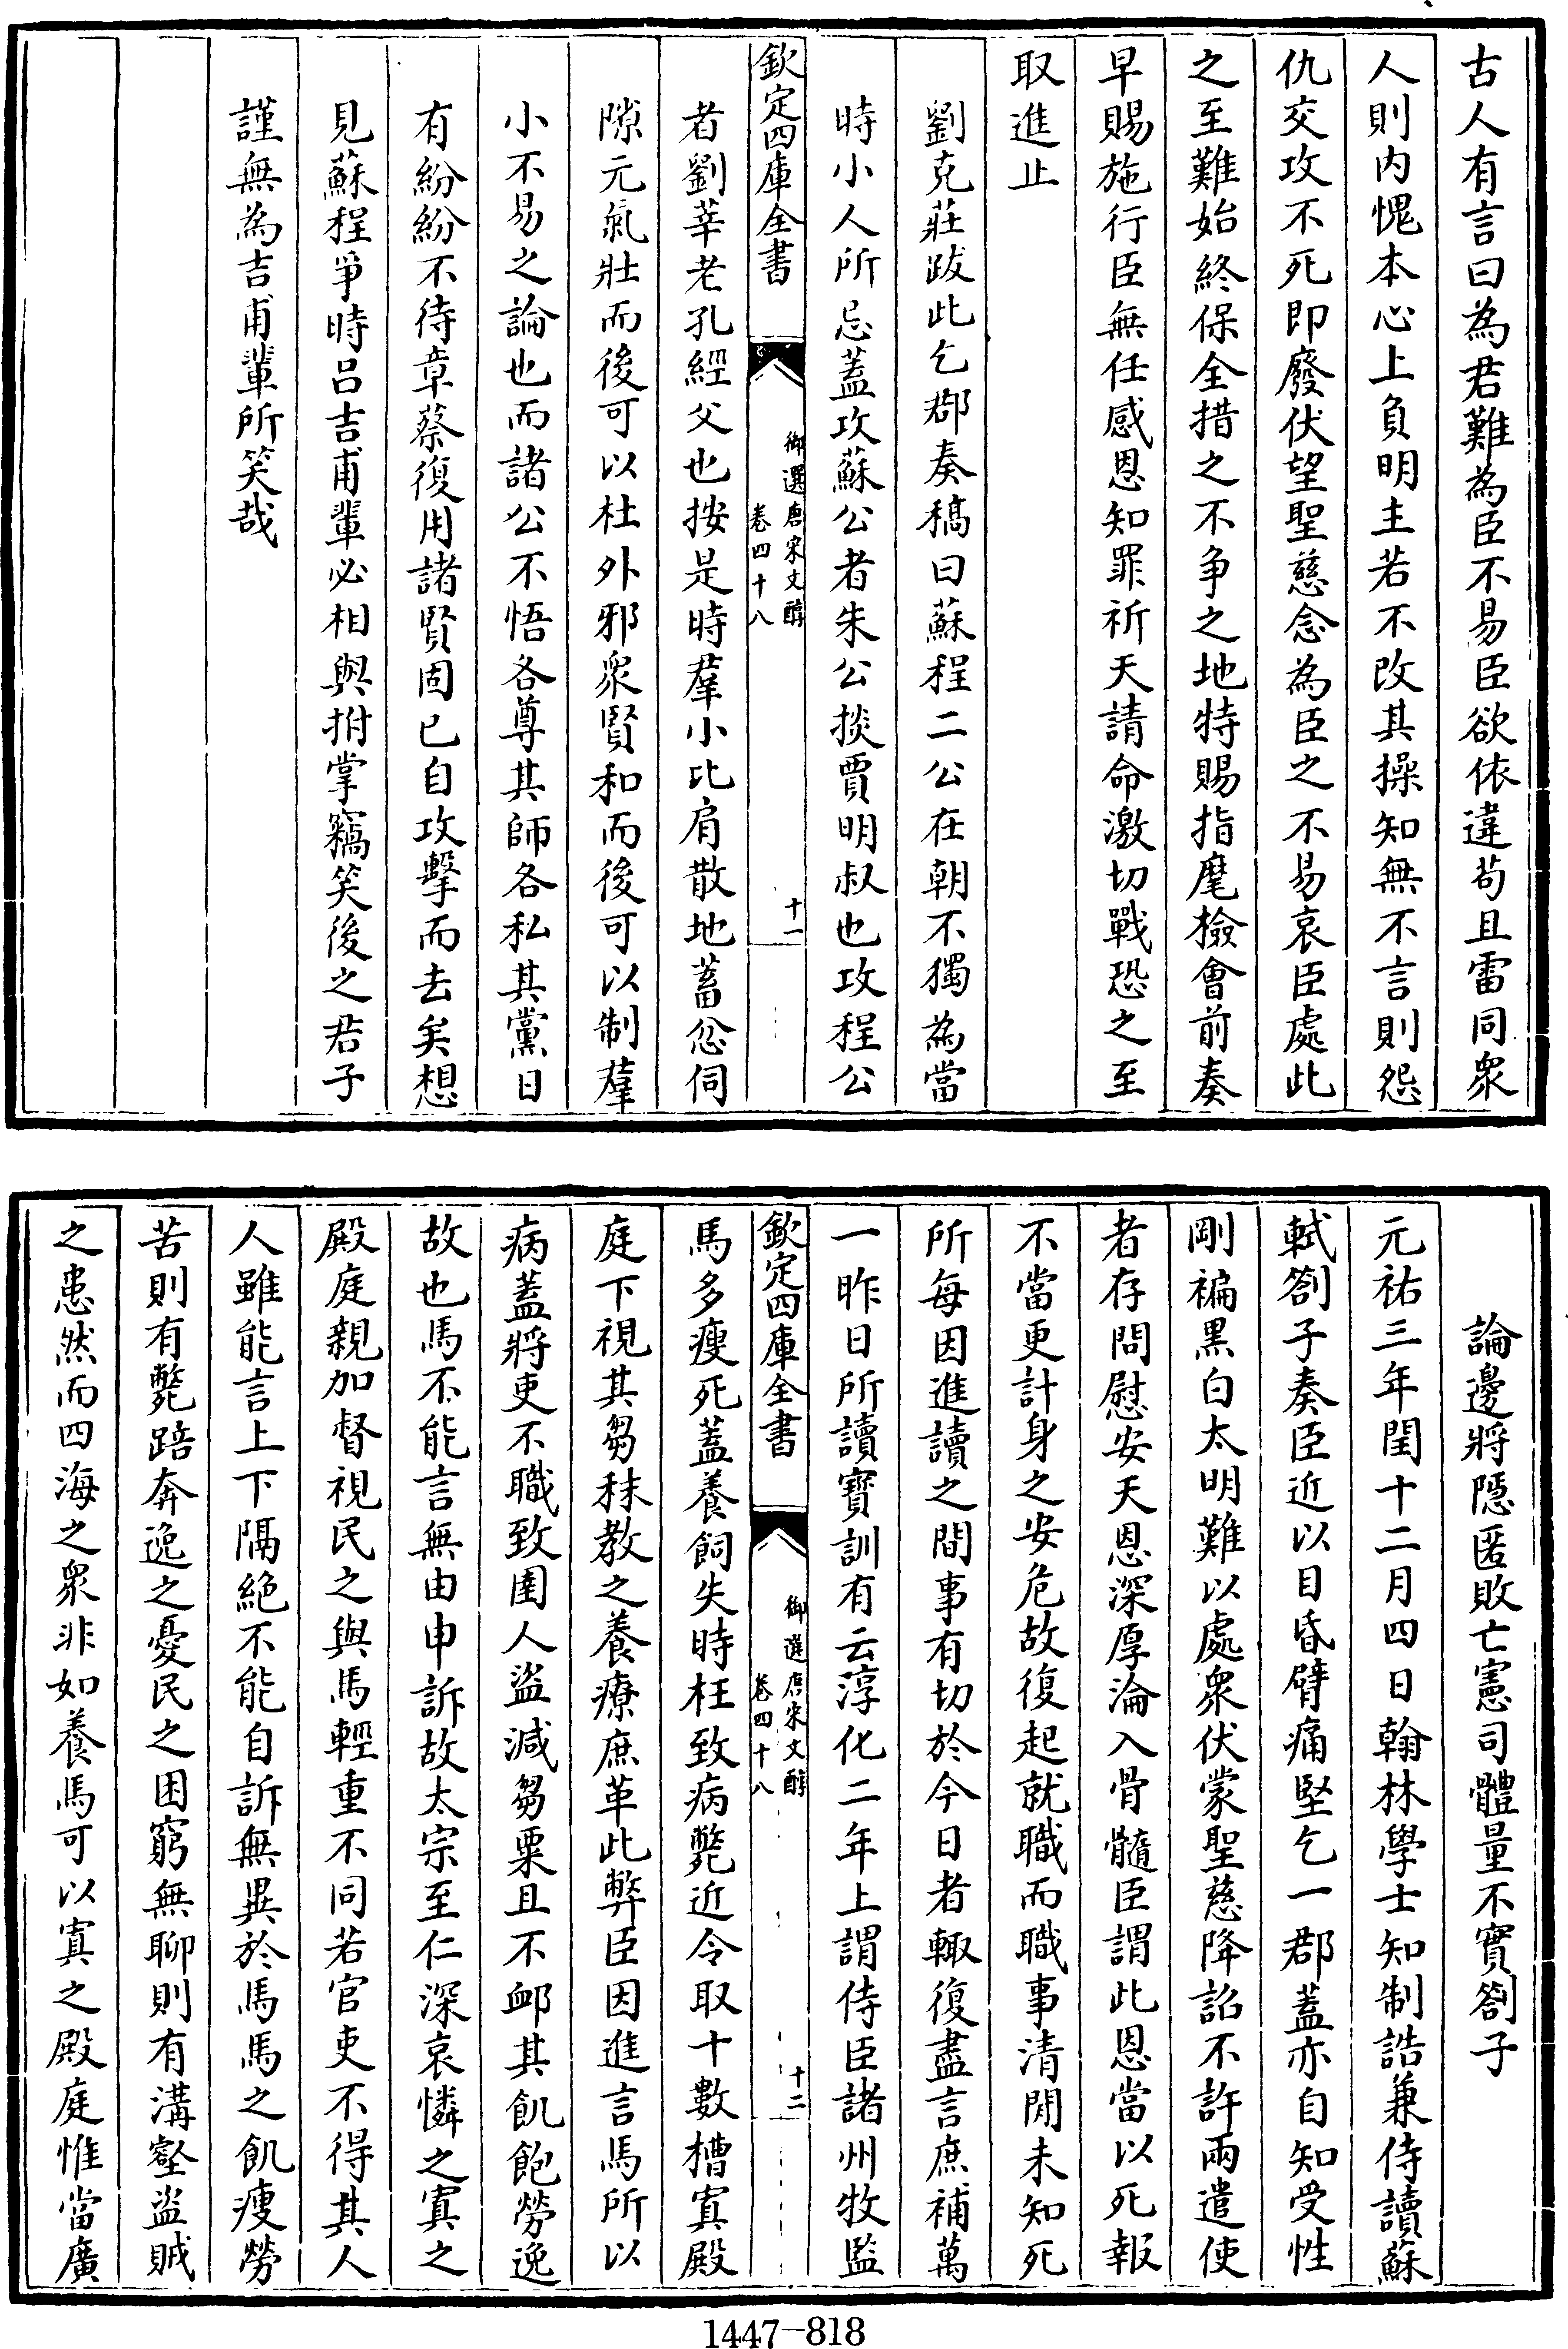 古人有言曰為君難為臣不易臣欲依違茍且雷同衆
人則内愧本心上負明主若不改其操知無不言則怨
仇交攻不死即廢伏望聖慈念為臣之不易哀臣處此
之至難始終保全措之不争之地特賜指麾檢會前奏
早賜施行臣無任感恩知罪祈天請命激切戰恐之至
取進止
劉克莊跋此乞郡奏稿曰蘇程二公在朝不獨為當
時小人所忌蓋攻蘇公者朱公掞賈明叔也攻程公
欽定四庫全書
御選唐宋文醇
卷四十八
十一
者劉莘老孔經父也按是時羣小比肩散地蓄忿伺
隙元氣壯而後可以杜外邪衆賢和而後可以制羣
小不易之論也而諸公不悟各尊其師各私其黨日
有紛紛不待章蔡復用諸賢固已自攻擊而去矣想
見蘇程爭時吕吉甫輩必相與拊掌竊笑後之君子
謹無為吉甫輩所笑哉
論邊將隱匿敗亡憲司體量不實劄子
元祐三年閏十二月四日翰林學士知制誥兼侍讀蘇
軾劄子奏臣近以目昏臂痛堅乞一郡蓋亦自知受性
剛褊黑白太明難以處衆伏蒙聖慈降詔不許兩遣使
者存問慰安天恩深厚淪入骨髓臣謂此恩當以死報
不當更計身之安危故復起就職而職事清閒未知死
所每因進讀之間事有切於今日者輙復盡言庶補萬
一昨日所讀寶訓有云淳化二年上謂侍臣諸州牧監
欽定四庫全書
御選唐宋文醇
卷四十八
十二
馬多瘦死蓋養飼失時枉致病斃近令取十數槽寘殿
庭下視其芻秣教之養療庶革此弊臣因進言馬所以
病蓋將吏不職致圉人盜減芻粟且不䘏其飢飽勞逸
故也馬不能言無由申訴故太宗至仁深哀憐之寘之
殿庭親加督視民之與馬輕重不同若官吏不得其人
人雖能言上下隔絶不能自訴無異於馬馬之飢瘦勞
苦則有斃踣奔逸之憂民之困窮無聊則有溝壑盜賊
之患然而四海之衆非如養馬可以寘之殿庭惟當廣
1447-818